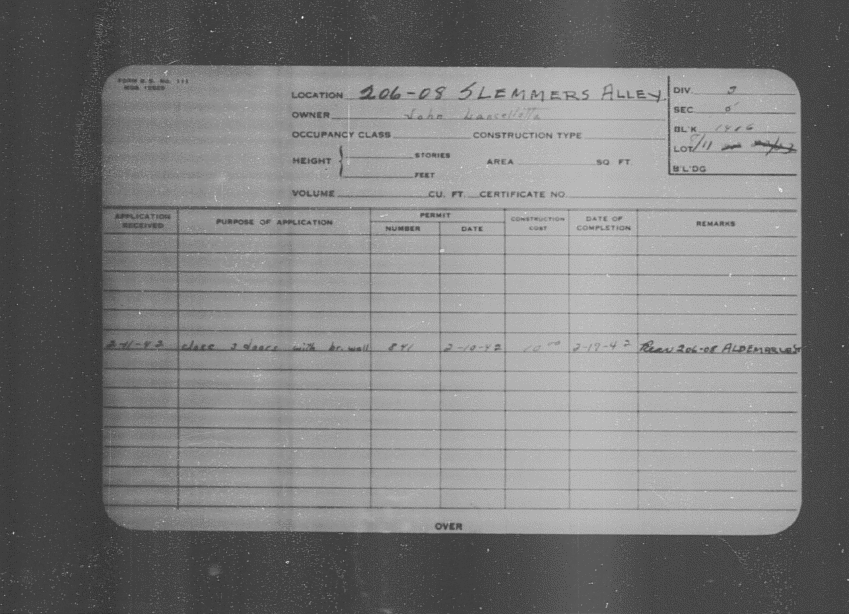 FORM B.E. NO. 111
LOCATION 206-08 SLEMMERS ALLEY
OWNER John Lancellotta
OCCUPANCY CLASS CONSTRUCTION TYPE
HEIGHT STORIES FEET AREA SQ. FT.
VOLUME CU. FT. CERTIFICATE NO.
DIV. 3
SEC 0
BL'K 1406
LOT 9/11
B'L'DG
APPLICATION RECEIVED PURPOSE OF APPLICATION PERMIT NUMBER DATE CONSTRUCTION COST DATE OF COMPLETION REMARKS
2-11-42 close 2 doors with br. wall 891 2-10-42 10 00 2-19-42 Rear 206-08 ALDEMARLE ST
OVER